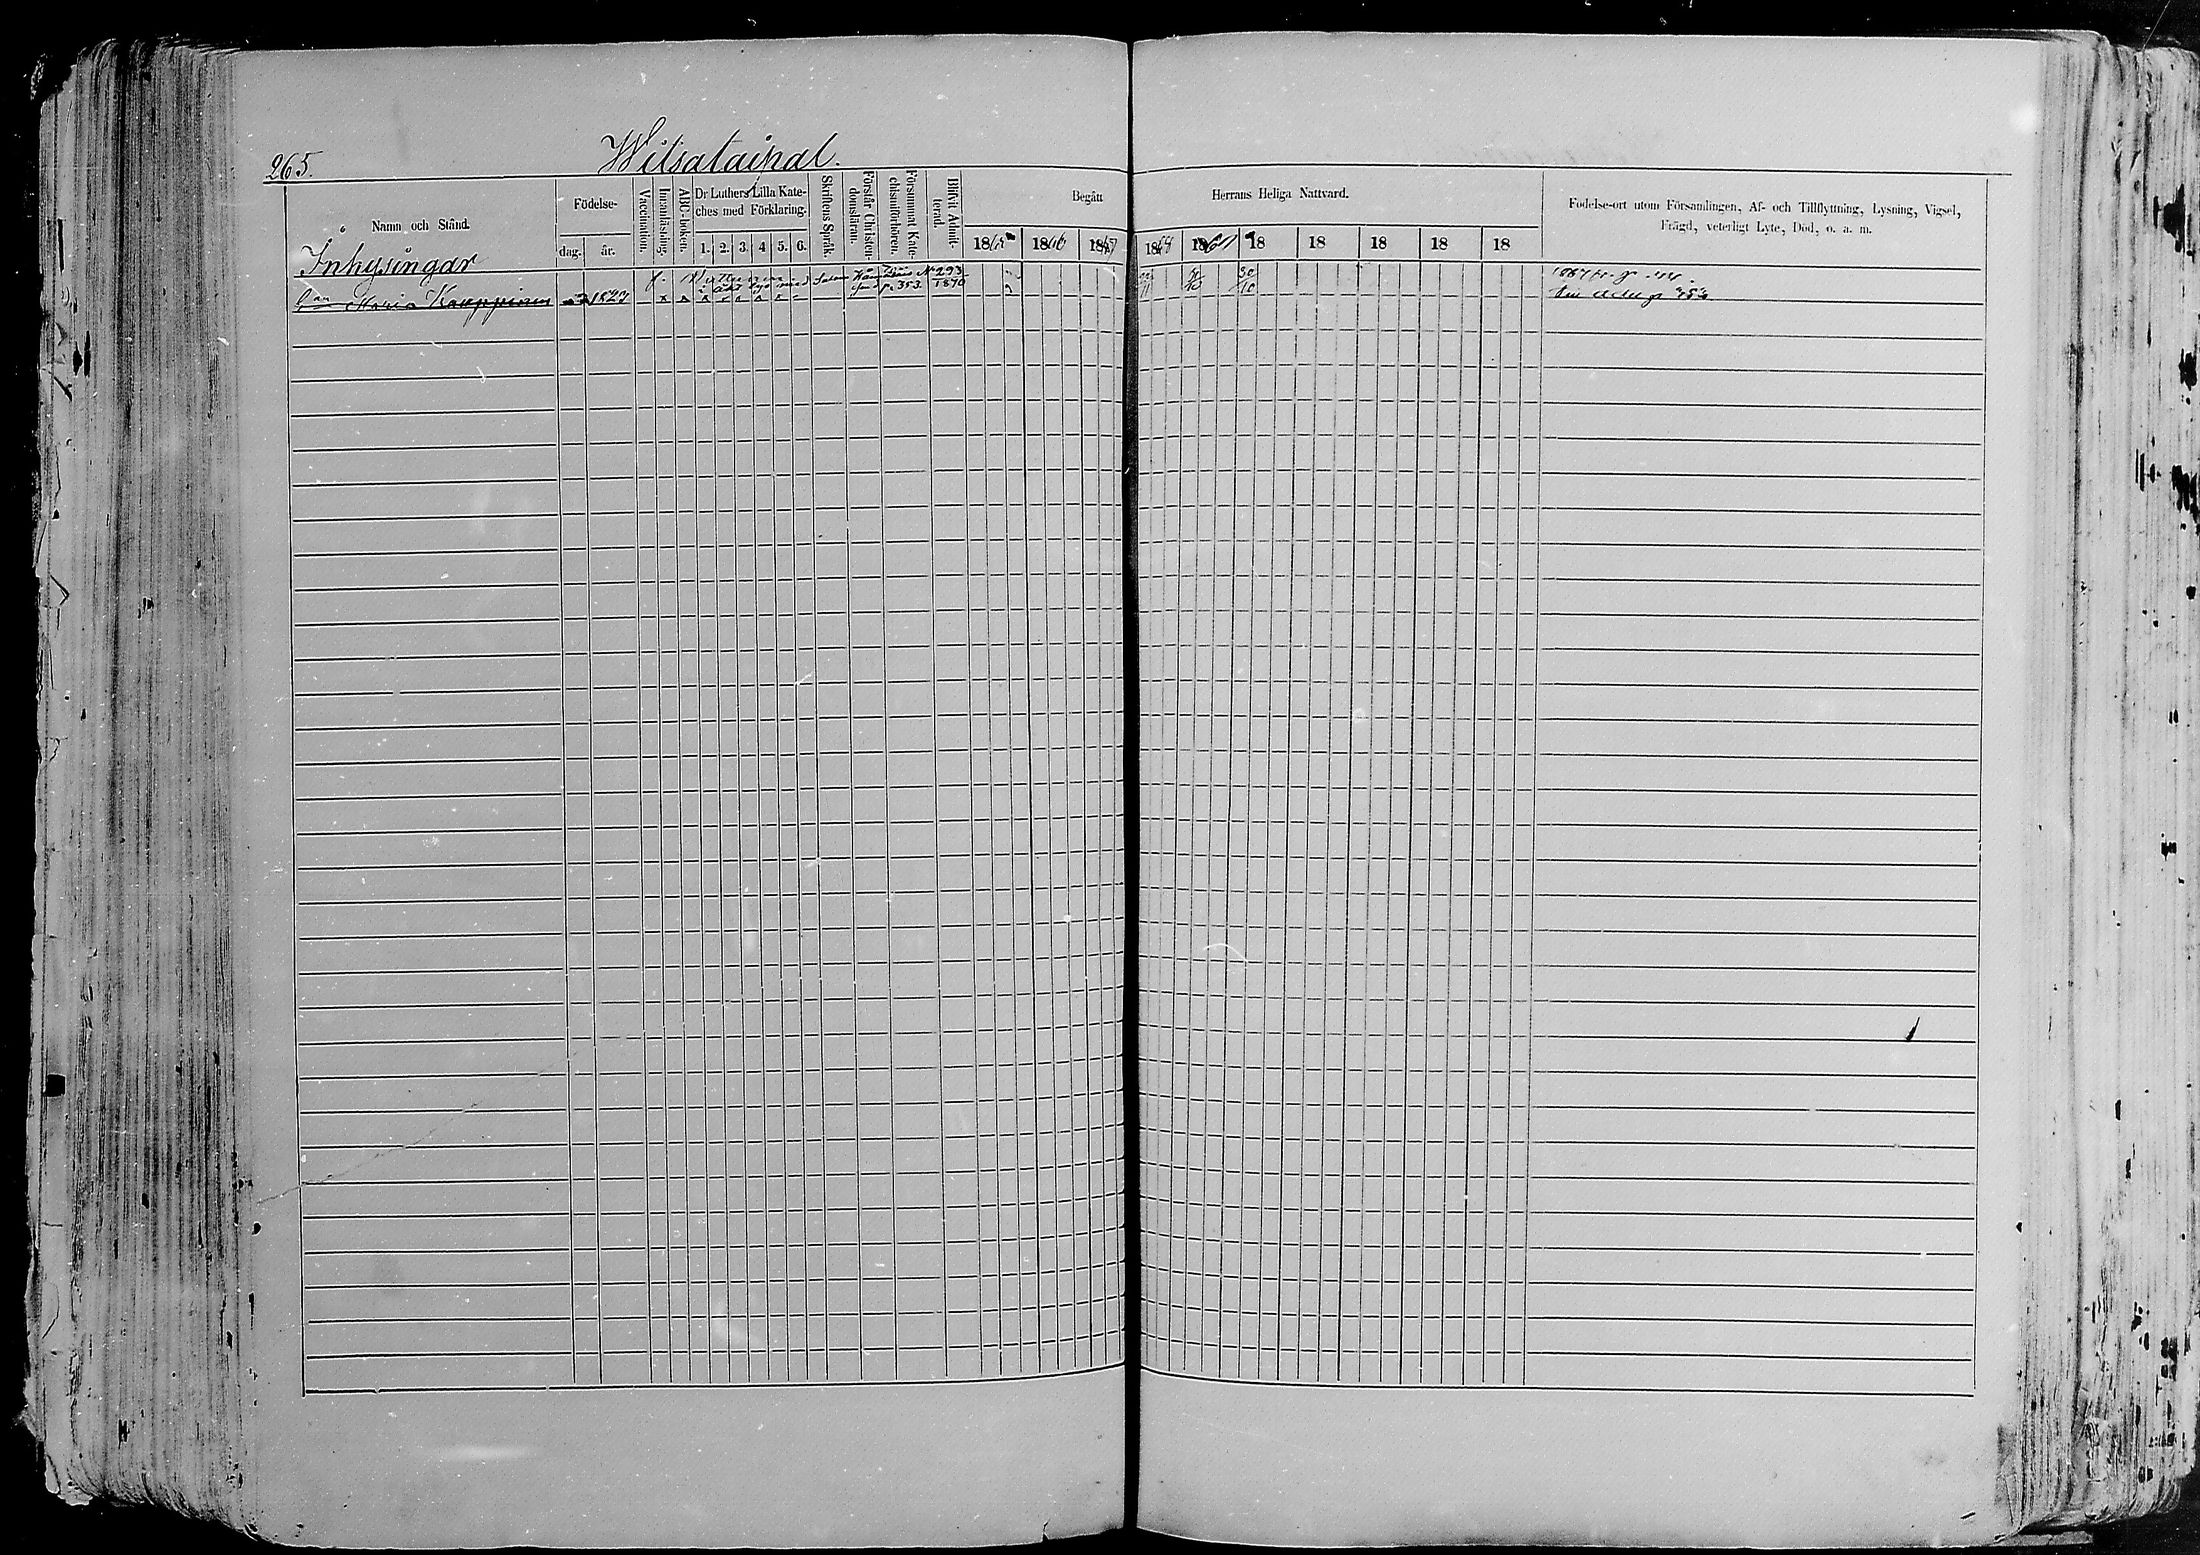 265.
Witsataipal.
Namn och Stånd.
Födelse-
dag.
år.
Vaccination.
Innanläsning.
ABC-boken.
Dr Luthers Lilla Kate-
ches med Förklaring.
1. 2. 3. 4 5. 6.
Skriftens Språk.
Förstår Christen-
domsläran.
Försummat Kate-
chismiförhören.
Blifvit Admit-
terad.
Begått
1865 1866 1867
Herrans Heliga Nattvard.
1868 1869 18 18 18 18 18
Födelse-ort utom Församlingen, Af- och Tillflyttning, Lysning, Vigsel,
Frägd, veterligt Lyte, Död, o. a. m.
Inhysingar
Maria Kauppinen 1829
p. 353.
No 293
1870
30
10
1867 fr. p.